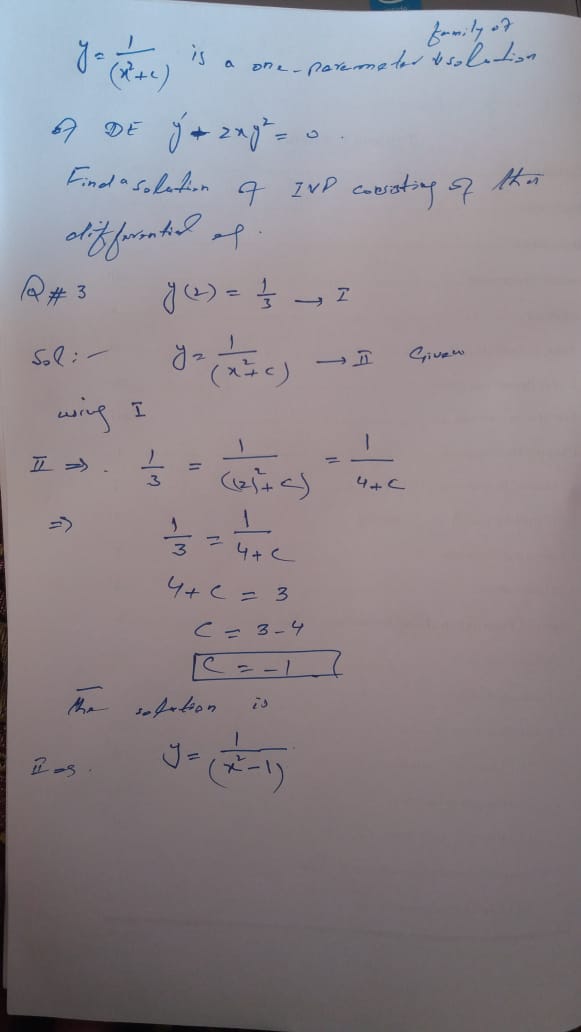 family of
y = 1/(x²+c) is a one-parameter solution
of DE y' + 2xy² = 0.
Find a solution of IVP consisting of this
differential eq.
Q # 3 y(2) = 1/3 → I
Sol:- y = 1/(x²+c) → II Given
using I
II ⇒. 1/3 = 1/((2)²+c) = 1/(4+c)
⇒ 1/3 = 1/(4+c)
4+c = 3
c = 3-4
c = -1
The solution is
II ⇒. y = 1/(x²-1)